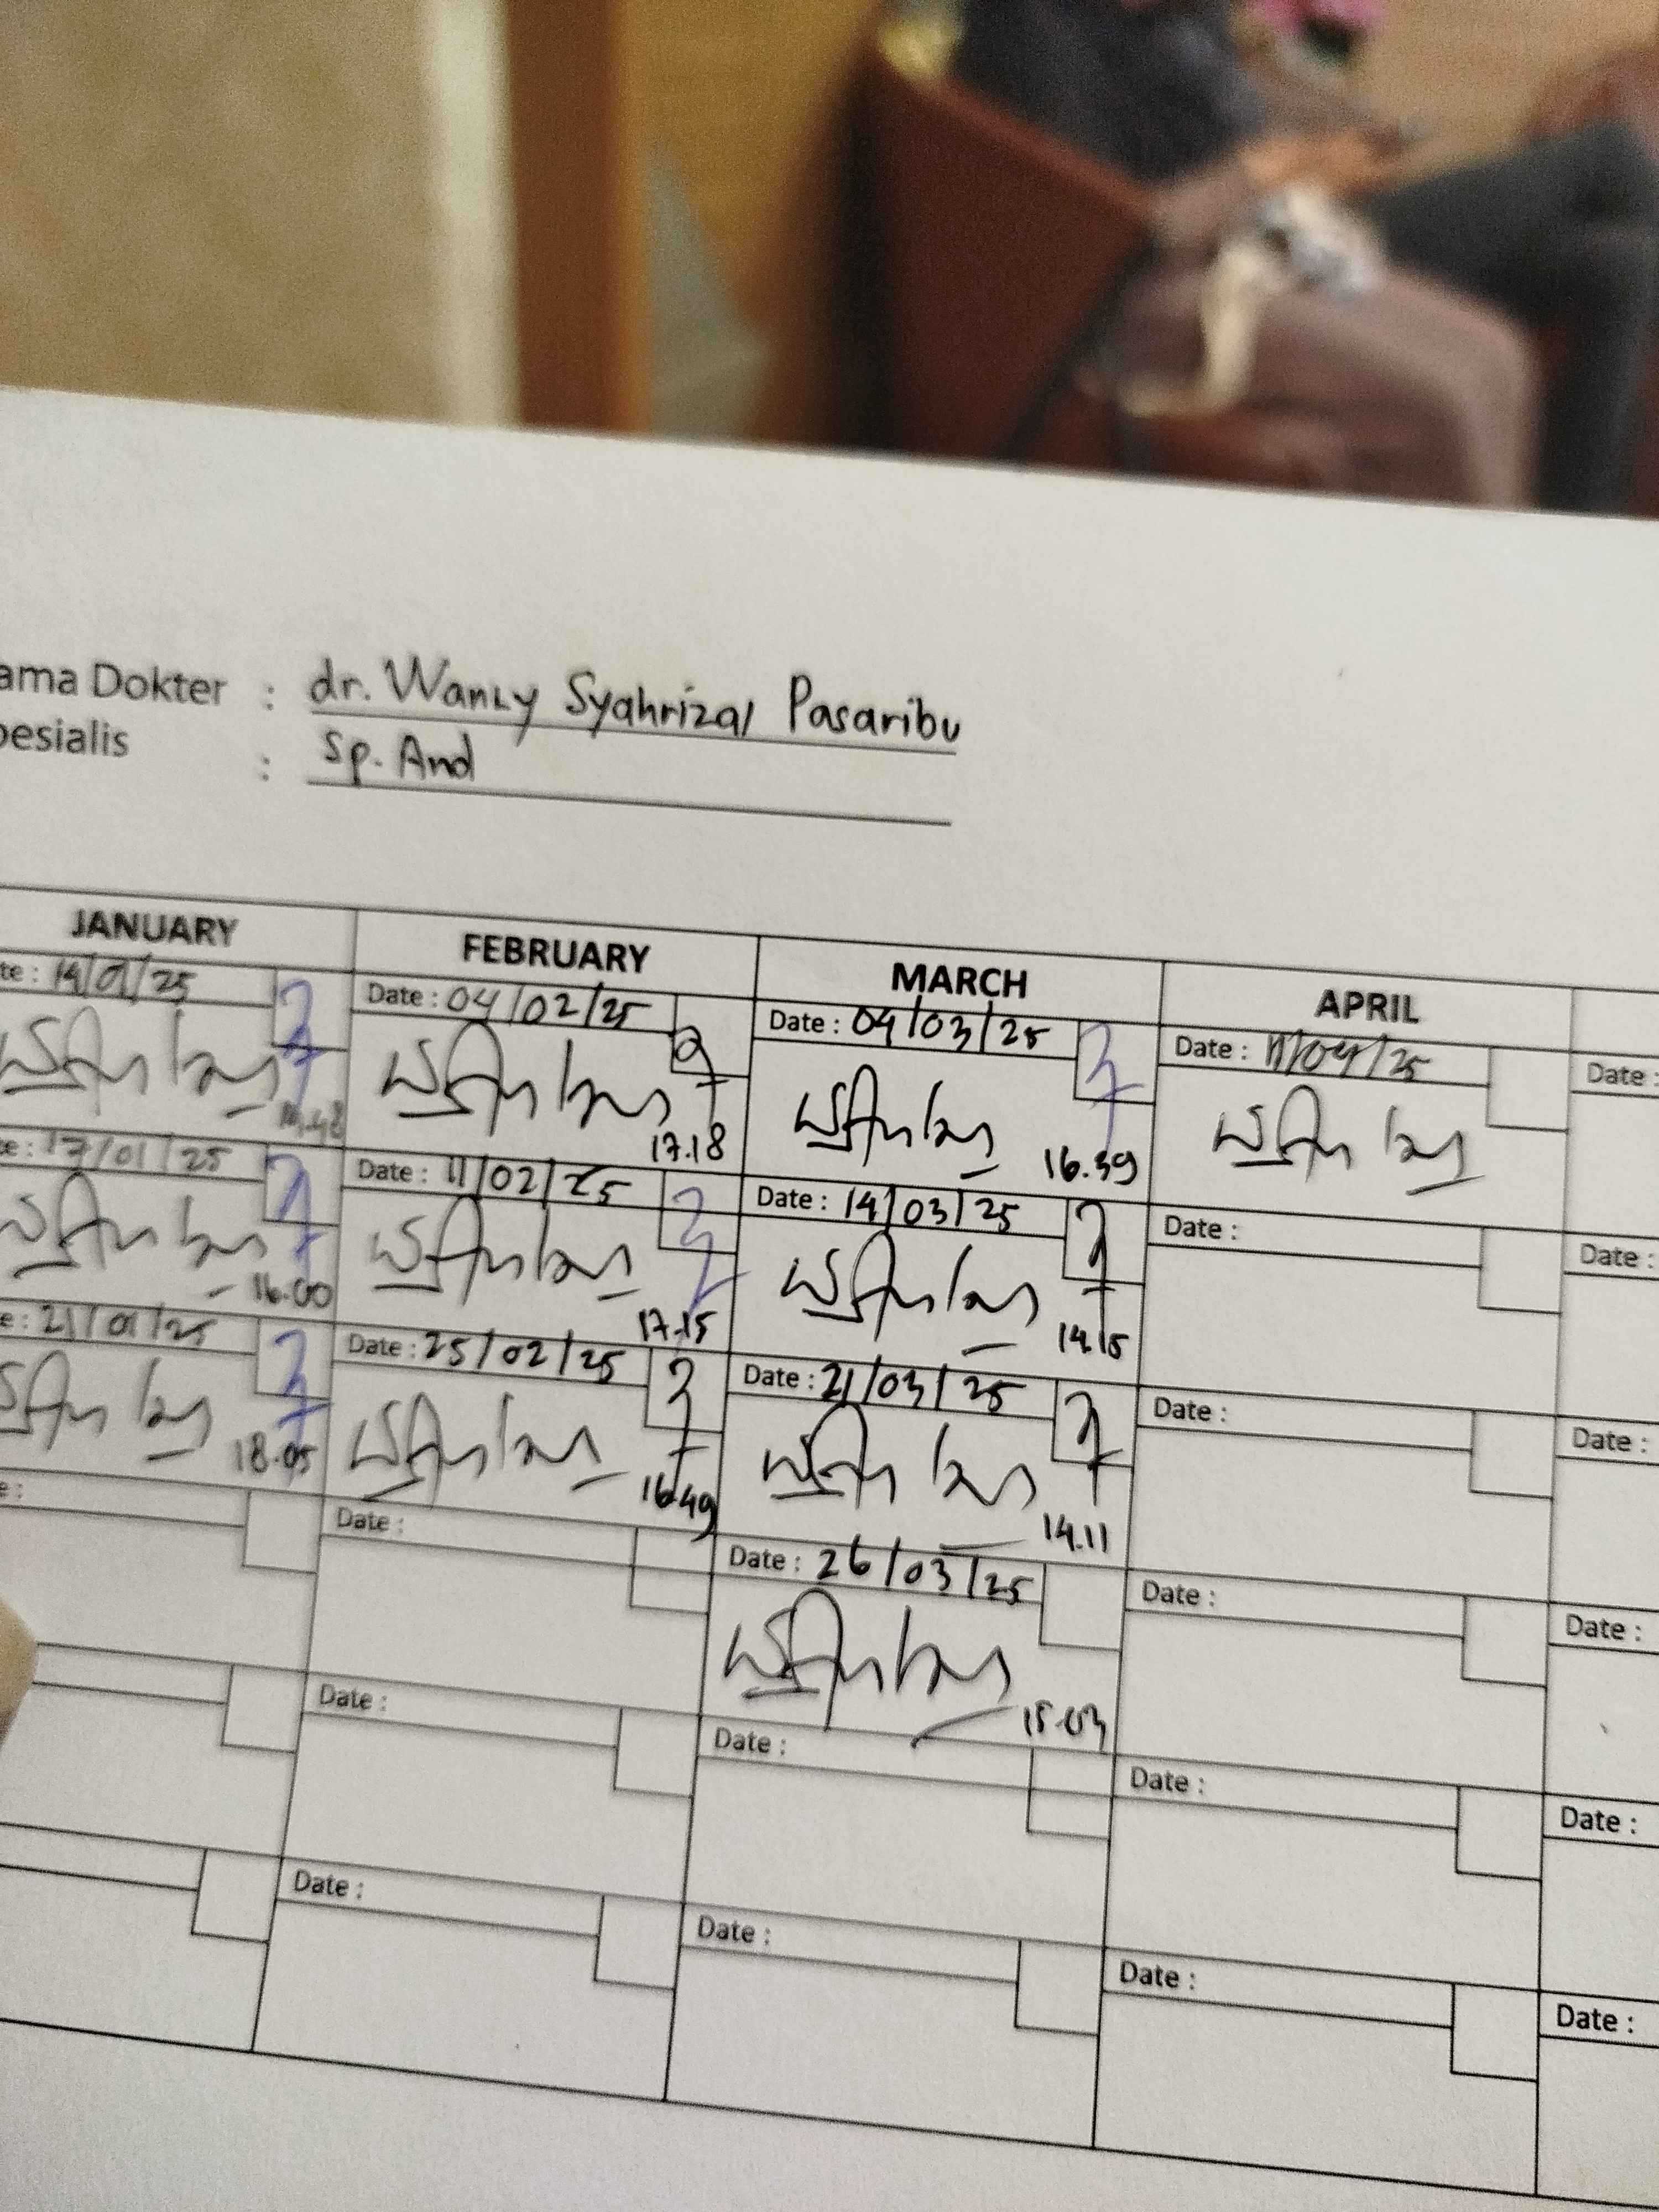 ama Dokter : dr. Wanly Syahrizal Pasaribu
pesialis : Sp. And
JANUARY FEBRUARY MARCH APRIL
te : 14/01/25 Date : 04/02/25 Date : 04/03/25 Date : 11/04/25 Date :
17.18 16.39
e : 17/01/25 Date : 11/02/25 Date : 14/03/25 Date : Date :
16.00 17.15 14.15
e : 21/01/25 Date : 25/02/25 Date : 21/03/25 Date : Date :
18.05 16.49 14.11
e : Date : Date : 26/03/25 Date : Date :
15.03
Date : Date : Date : Date :
Date : Date : Date : Date :